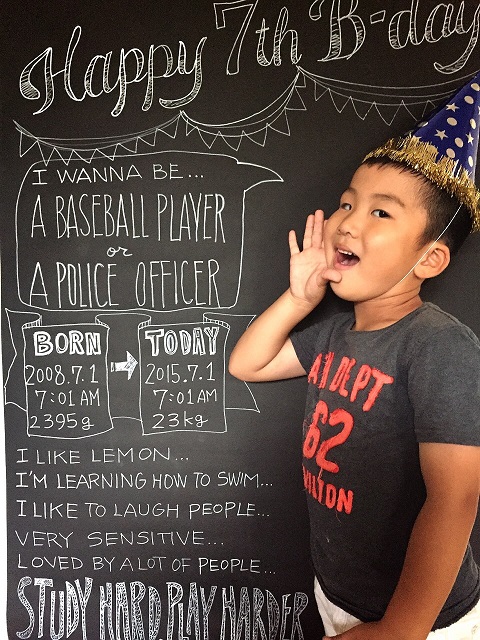 Happy 7th B-day
I WANNA BE...
A BASEBALL PLAYER
or
A POLICE OFFICER
BORN
2008.7.1
7:01AM
2395g
TODAY
2015.7.1
7:01AM
23kg
I LIKE LEMON...
I'M LEARNING HOW TO SWIM...
I LIKE TO LAUGH PEOPLE...
VERY SENSITIVE...
LOVED BY A LOT OF PEOPLE...
STUDY HARD, PLAY HARDER
DEPT
62